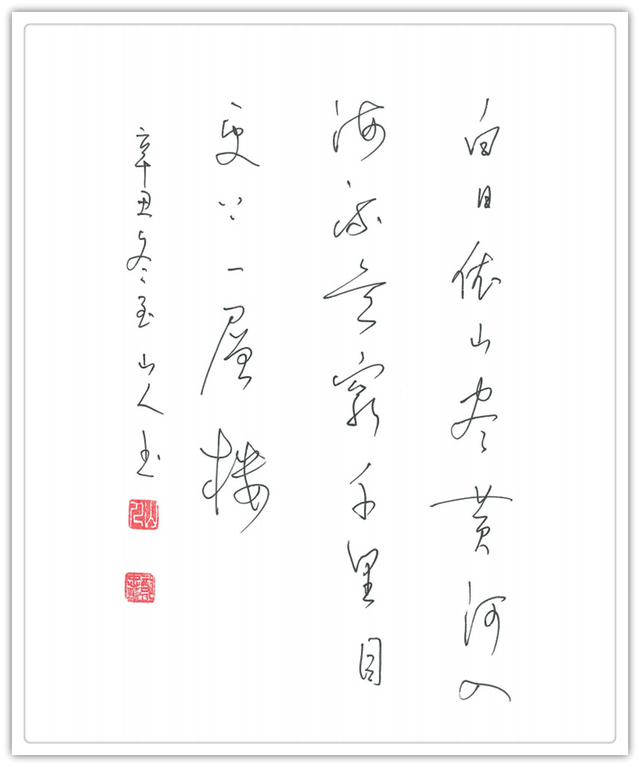 白日依山尽黄河入
海流欲窮千里目
更上一層楼
辛丑冬至山人书
山人